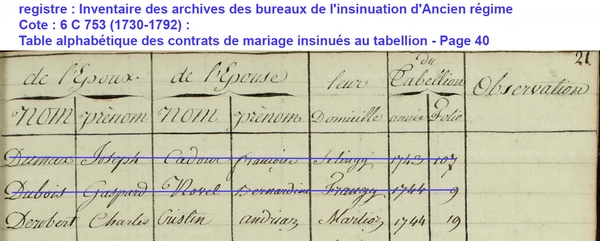 registre : Inventaire des archives des bureaux de l'insinuation d'Ancien régime
Cote : 6 C 753 (1730-1792) :
Table alphabétique des contrats de mariage insinués au tabellion - Page 40
21
de l'Epoux de l'Epouse leur du Tabellion Observation
Nom prénom Nom prénom Domicille année Folio
Joseph Cadoux françoise 1743 107
Dubois Gaspard Bernardine Frangy 1744 9
Derobert Charles Cristin andriaz Marlioz 1744 19